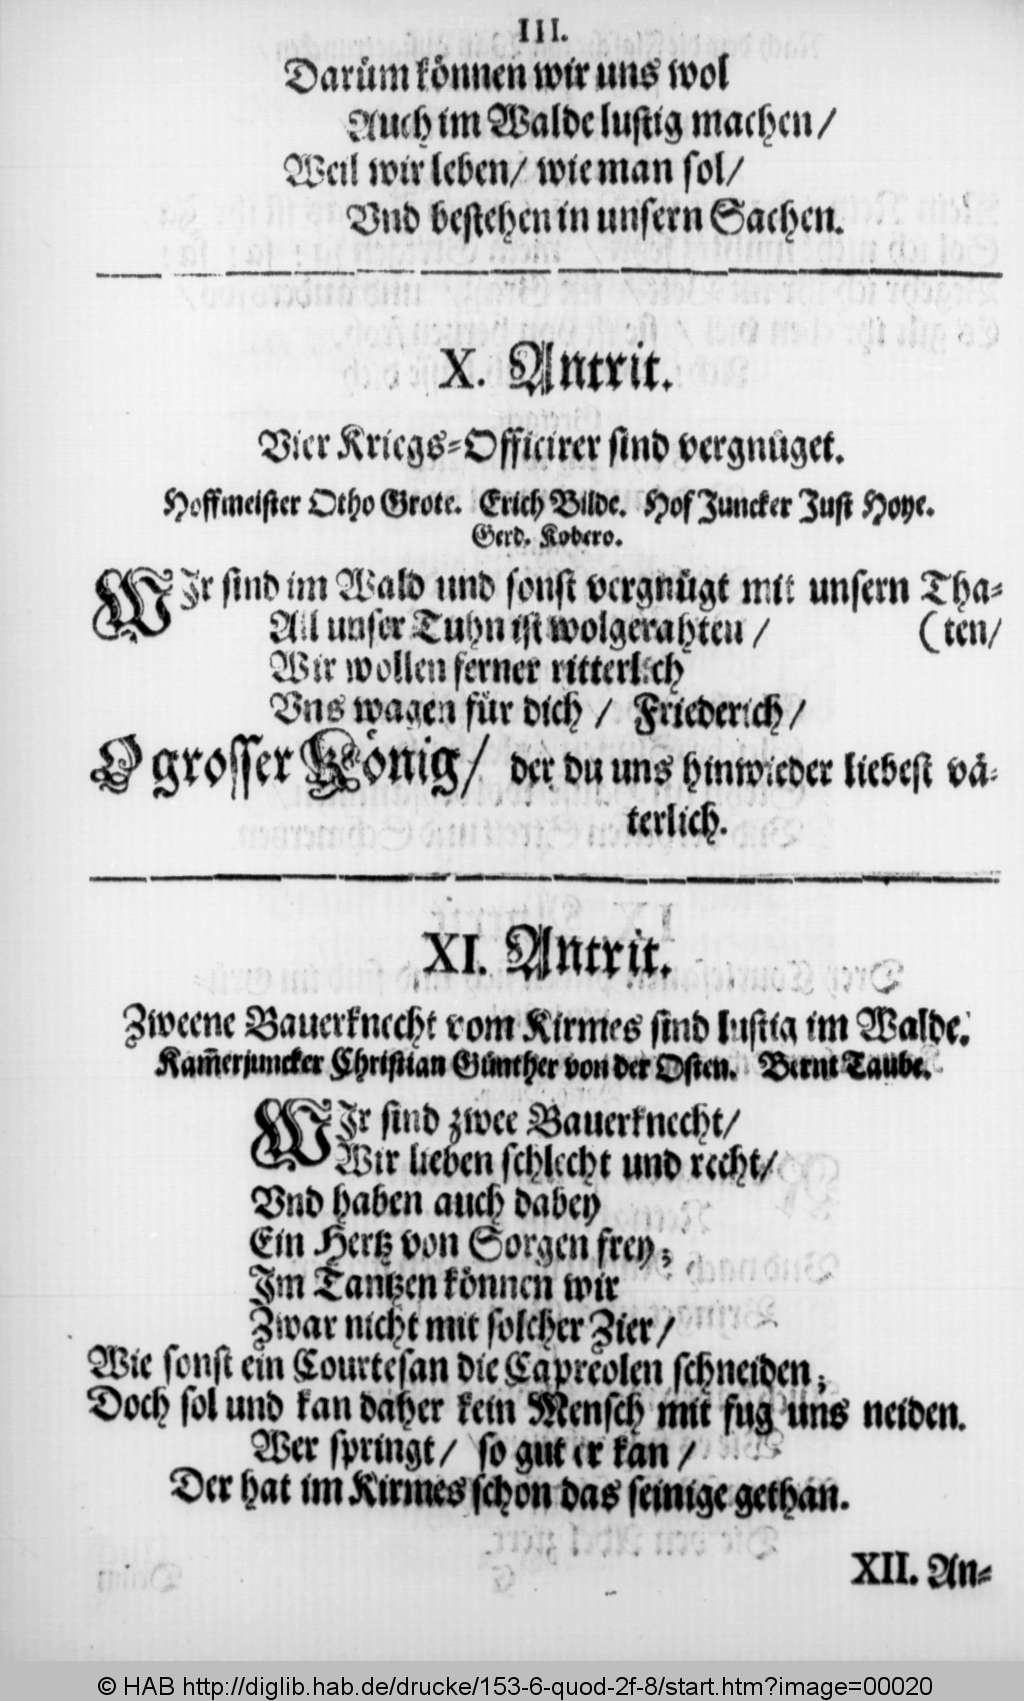 III.
Darům können wir uns wol
Auch im Walde lustig machen/
Weil wir leben/ wie man sol/
Vnd bestehen in unsern Sachen.
X. Antrit.
Vier Kriegs-Officirer sind vergnüget.
Hoffmeister Otho Grote. Erich Bilde. Hof Juncker Just Hoye.
Gerd. Kobero.
WJr sind im Wald und sonst vergnügt mit unsern Tha-
All unser Tuhn ist wolgerahten / (ten/
Wir wollen ferner ritterlich
Vns wagen für dich / Friederich/
O grosser König/ der du uns hinwieder liebest vä-
terlich.
XI. Antrit.
Zweene Bauerknecht vom Kirmes sind lustig im Walde.
Kam̃erjuncker Christian Günther von der Osten. Bernt Taube.
WJr sind zwee Bauerknecht/
Wir lieben schlecht und recht/
Vnd haben auch dabey
Ein Hertz von Sorgen frey;
Jm Tantzen können wir
Zwar nicht mit solcher Zier/
Wie sonst ein Courtesan die Capreolen schneiden;
Doch sol und kan daher kein Mensch mit fug uns neiden.
Wer springt/ so gut er kan /
Der hat im Kirmes schon das seinige gethan.
XII. An-
© HAB http://diglib.hab.de/drucke/153-6-quod-2f-8/start.htm?image=00020